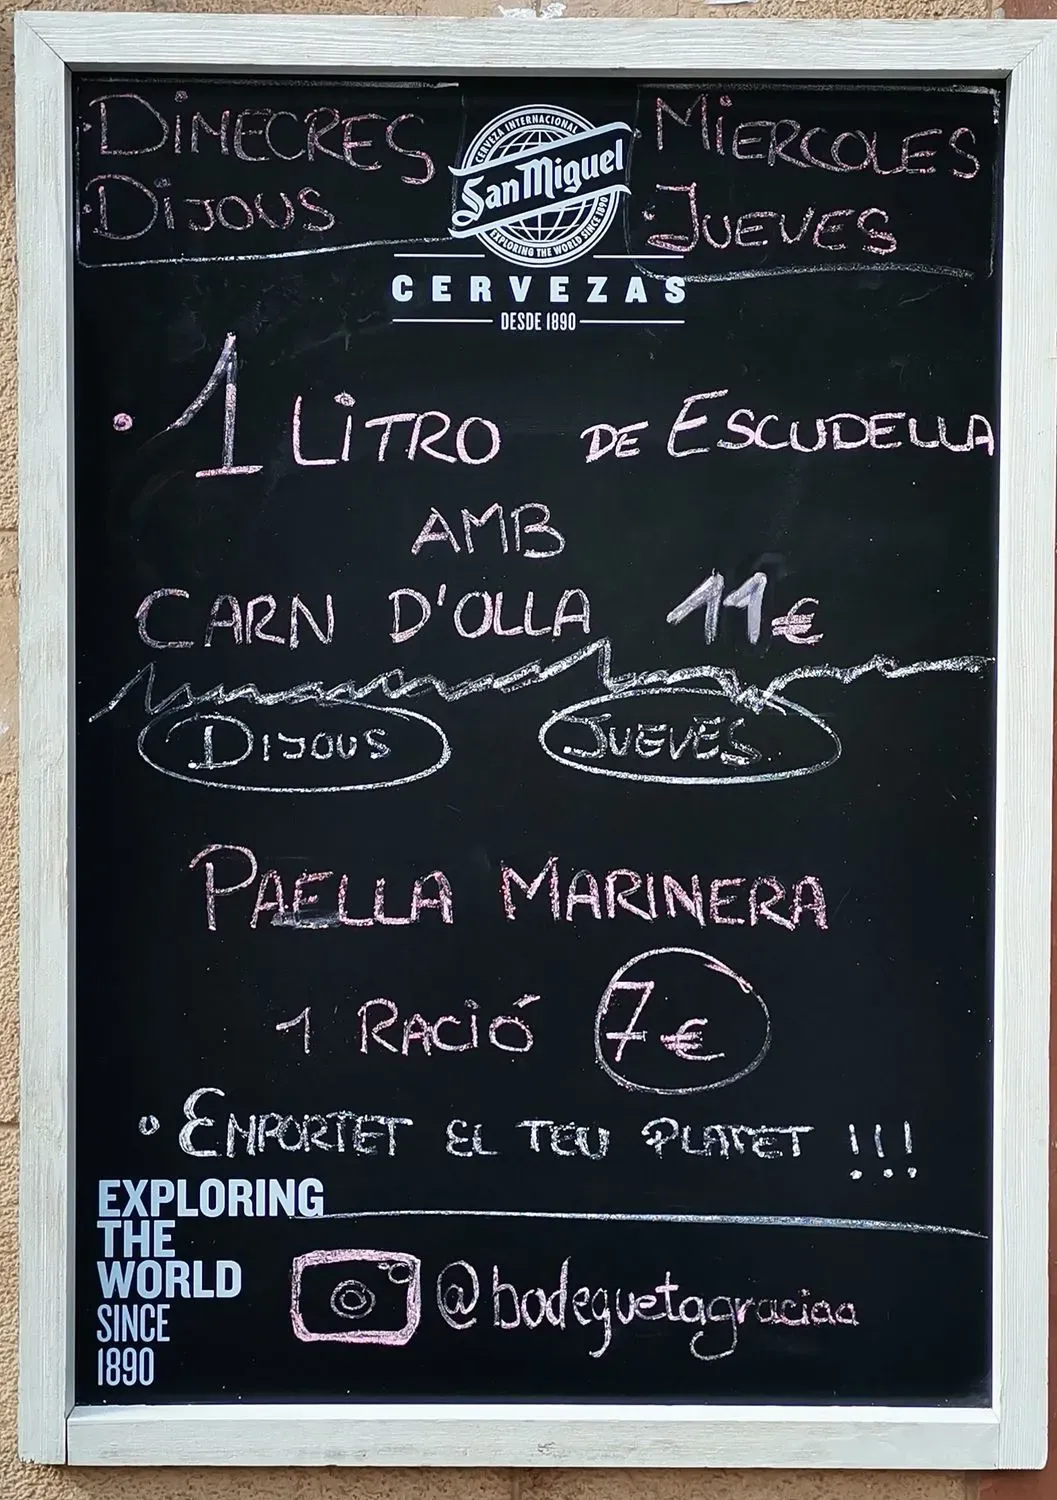 DIMECRES
DIJOUS
CERVEZA INTERNACIONAL
San Miguel
EXPLORING THE WORLD SINCE 1890
CERVEZAS
DESDE 1890
MIERCOLES
JUEVES
• 1 LiTRO DE ESCUDELLA
AMB
CARN D'OLLA 11€
DIJOUS JUEVES
PAELLA MARINERA
1 RACIÓ 7€
• ENPORTET EL TEU PLATET !!!
EXPLORING
THE
WORLD
SINCE
1890
@bodeguetagraciaa